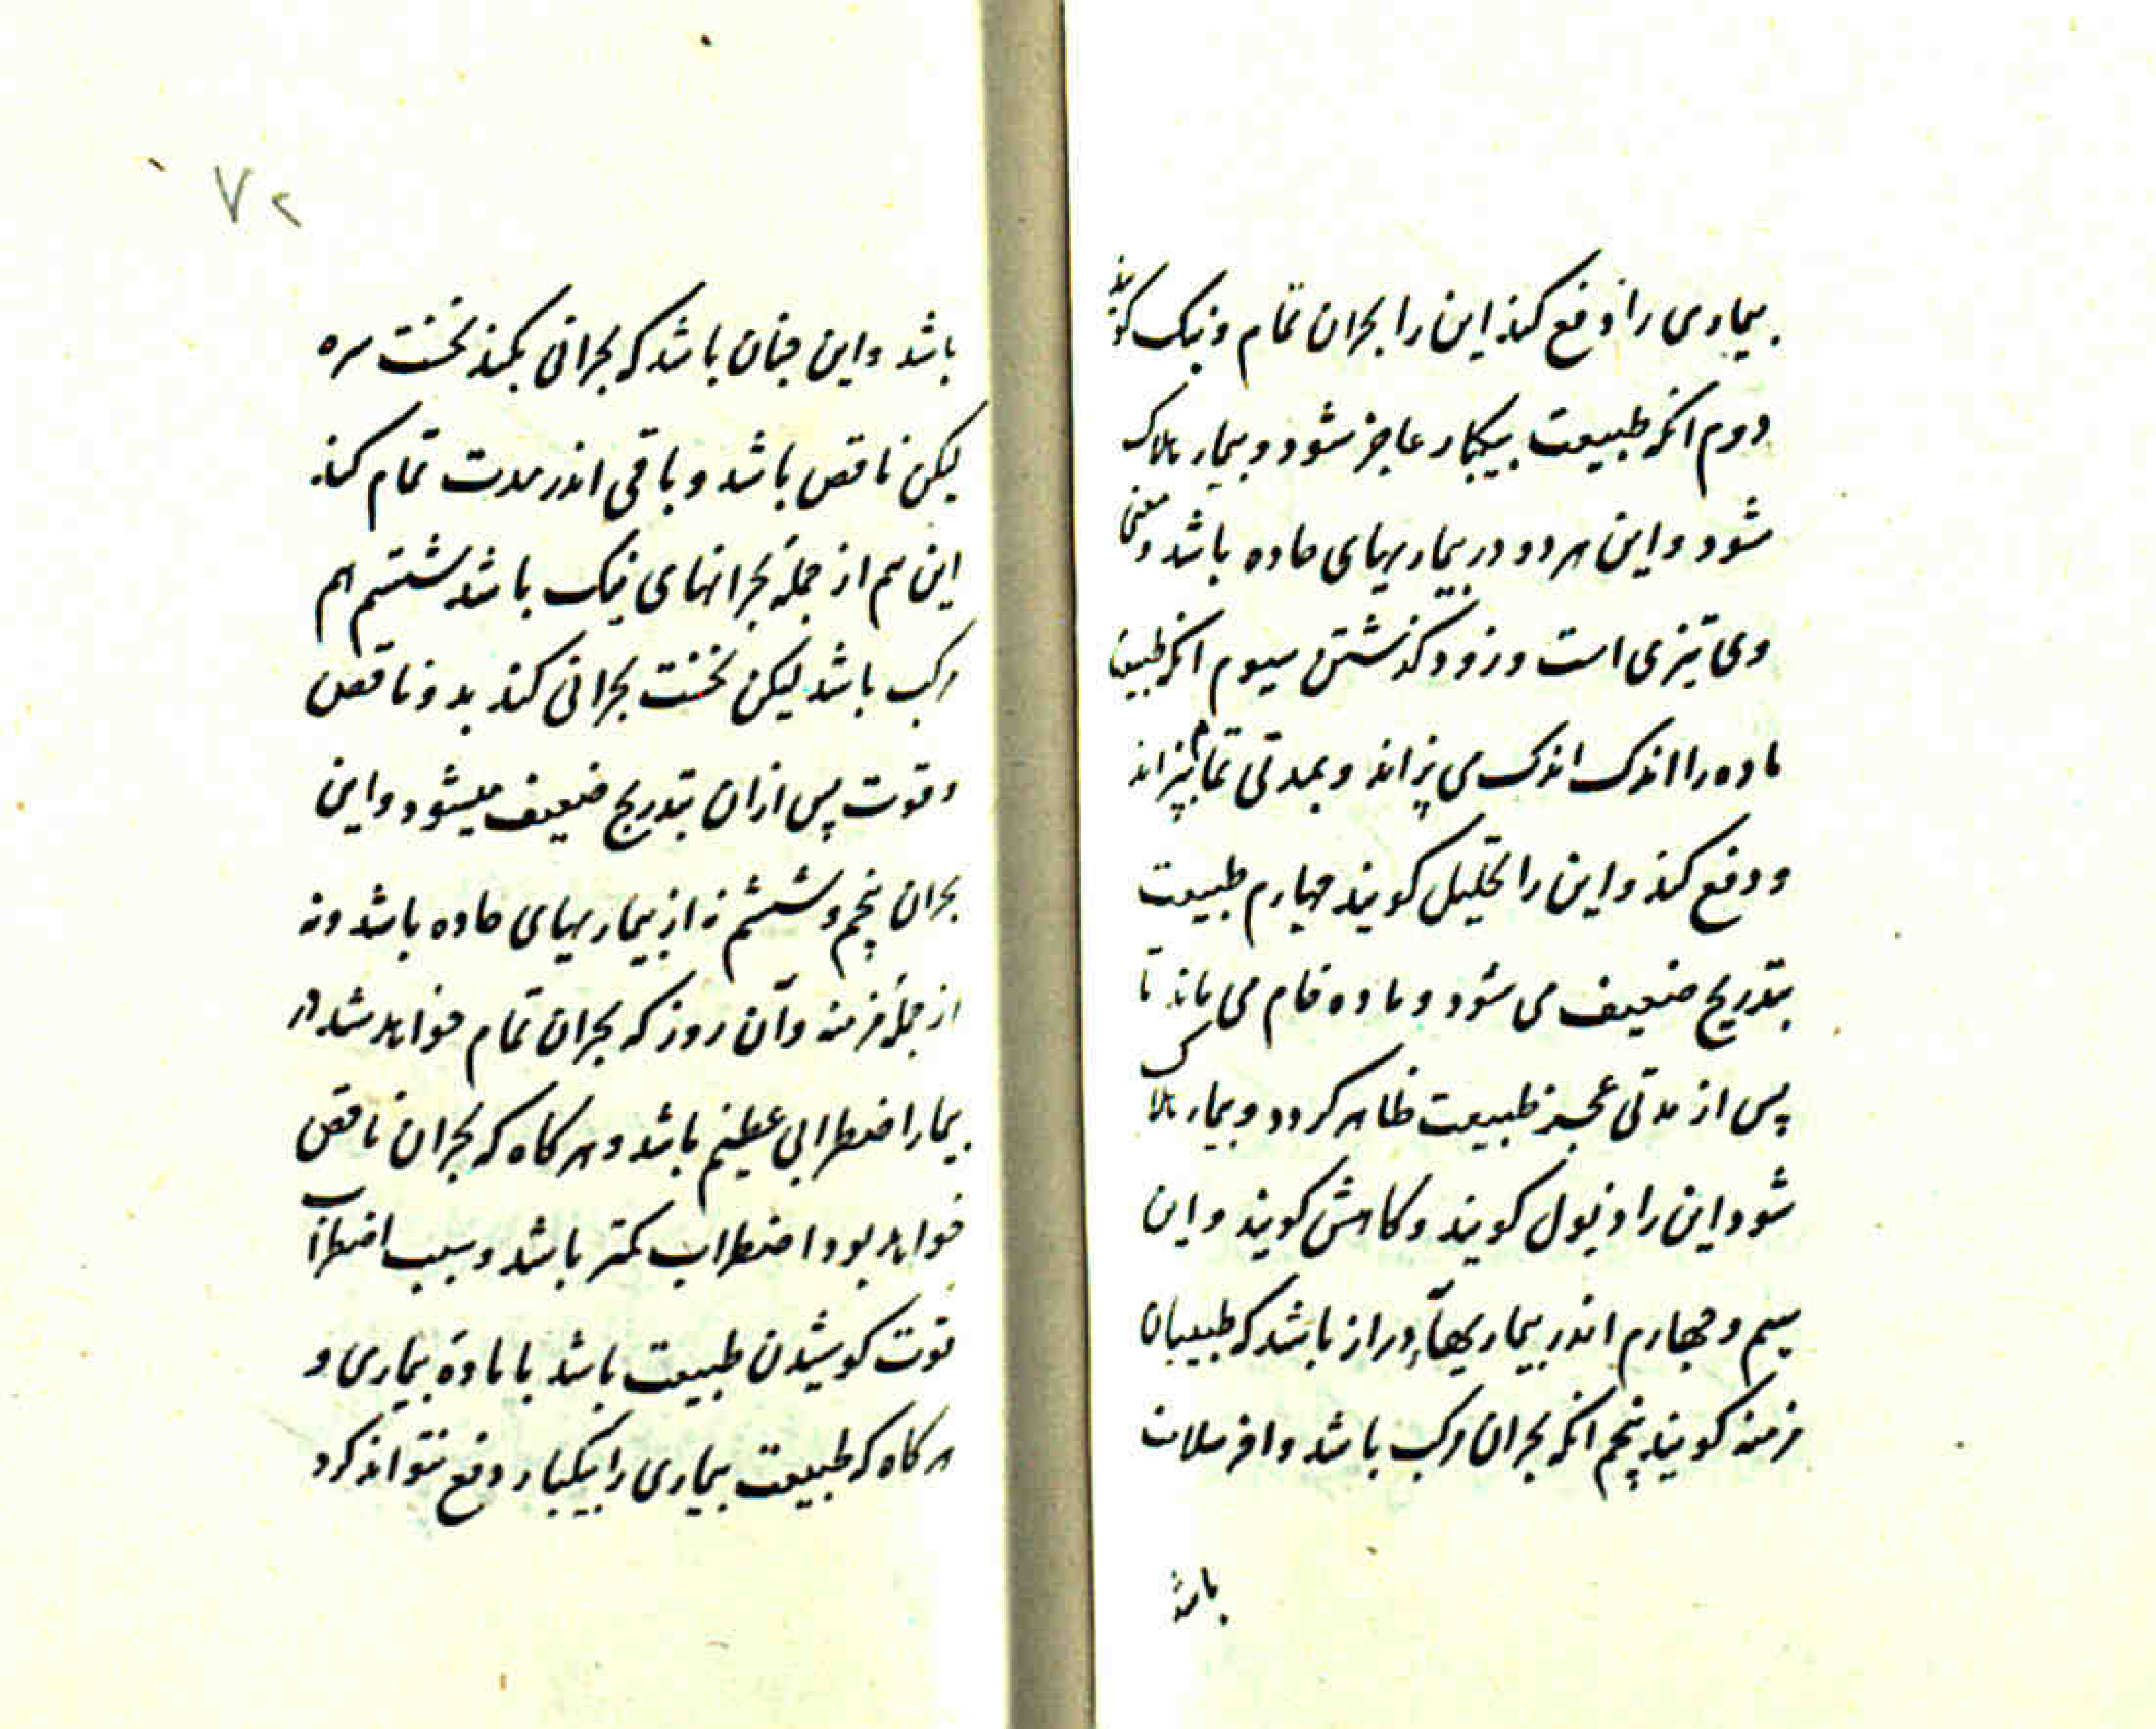 بیماری را دفع کند این را بحران تمام و نیک کویند
دوم انکه طبیعت بیکبار عاجز شود و بیمار هلاک
شود و این هر دو در بیماریهای حاده باشد و معنی
وی تیزی است و زود کذشتن سیوم انکه طبیعت
ماده را اندک اندک می پزاند و بمدتی تمام بپزاند
و دفع کند و این را تحلیل کویند چهارم طبیعت
بتدریج ضعیف می شود و ماده خام می ماند تا
پس از مدتی عجز طبیعت ظاهر کردد و بیمار هلاک
شود این را ذبول کویند و کاهش کویند و این
سیم و چهارم اندر بیماریهاء دراز باشد که طبیبان
مزمنه کویند پنجم انکه بحران مرکب باشد و اخر سلامت
باشد
۷۲
باشد و این چنان باشد که بحرانی بکند نخست سره
لیکن ناقص باشد و باقی اندر مدت تمام کند
این هم از جمله بحرانهای نیک باشد ششم هم
مرکب باشد لیکن نخست بحرانی کند بد و ناقص
و قوت پس ازان بتدریج ضعیف میشود و این
بحران پنجم و ششم نه از بیماریهای حاده باشد و نه
از جمله مزمنه و آن روز که بحران تمام خواهد شد در
بیمار اضطرابی عظیم باشد و هر کاه که بحران ناقص
خواهد بود اضطراب کمتر باشد و سبب اضطراب
قوت کوشیدن طبیعت باشد با مادهٔ بیماری و
هر کاه که طبیعت بیماری را بیکبار دفع نتواند کرد